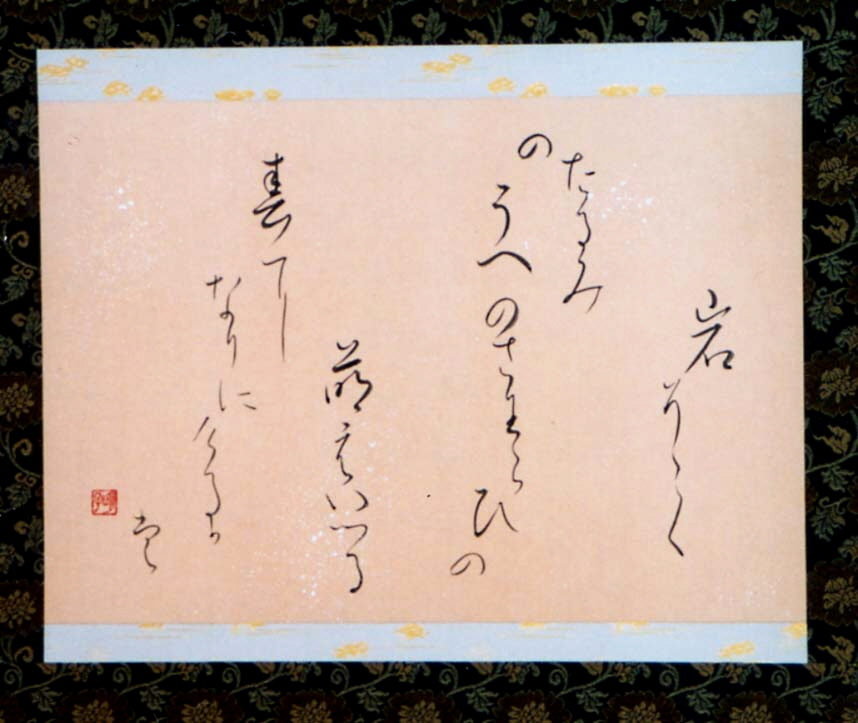 岩そゝく
たるみ
のうへのさわらひの
萌えいつる
春に
なりにけるか
も